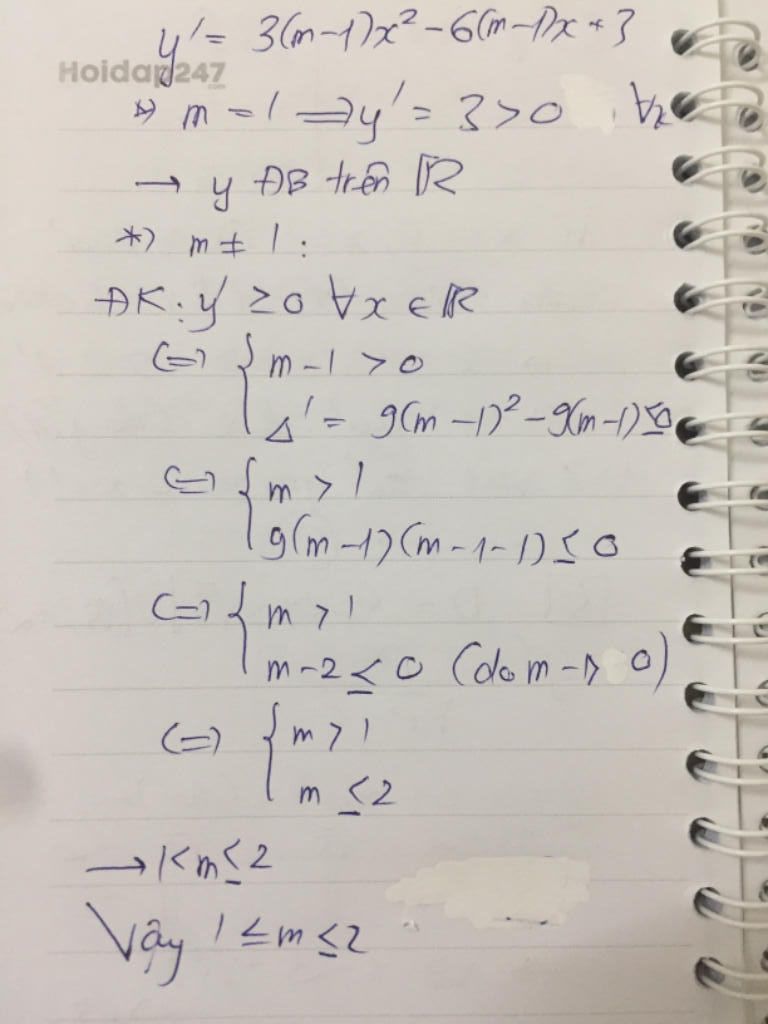 y' = 3(m-1)x² - 6(m-1)x + 3
Hoidap247.com
*) m = 1 ⟹ y' = 3 > 0 ∀x
→ y ĐB trên ℝ
*) m ≠ 1 :
ĐK: y' ≥ 0 ∀x ∈ ℝ
⟺ { m - 1 > 0
Δ' = 9(m-1)² - 9(m-1) ≤ 0
⟺ { m > 1
9(m-1)(m-1-1) ≤ 0
⟺ { m > 1
m - 2 ≤ 0 (do m-1> 0)
⟺ { m > 1
m ≤ 2
→ 1 < m ≤ 2
Vậy 1 ≤ m ≤ 2